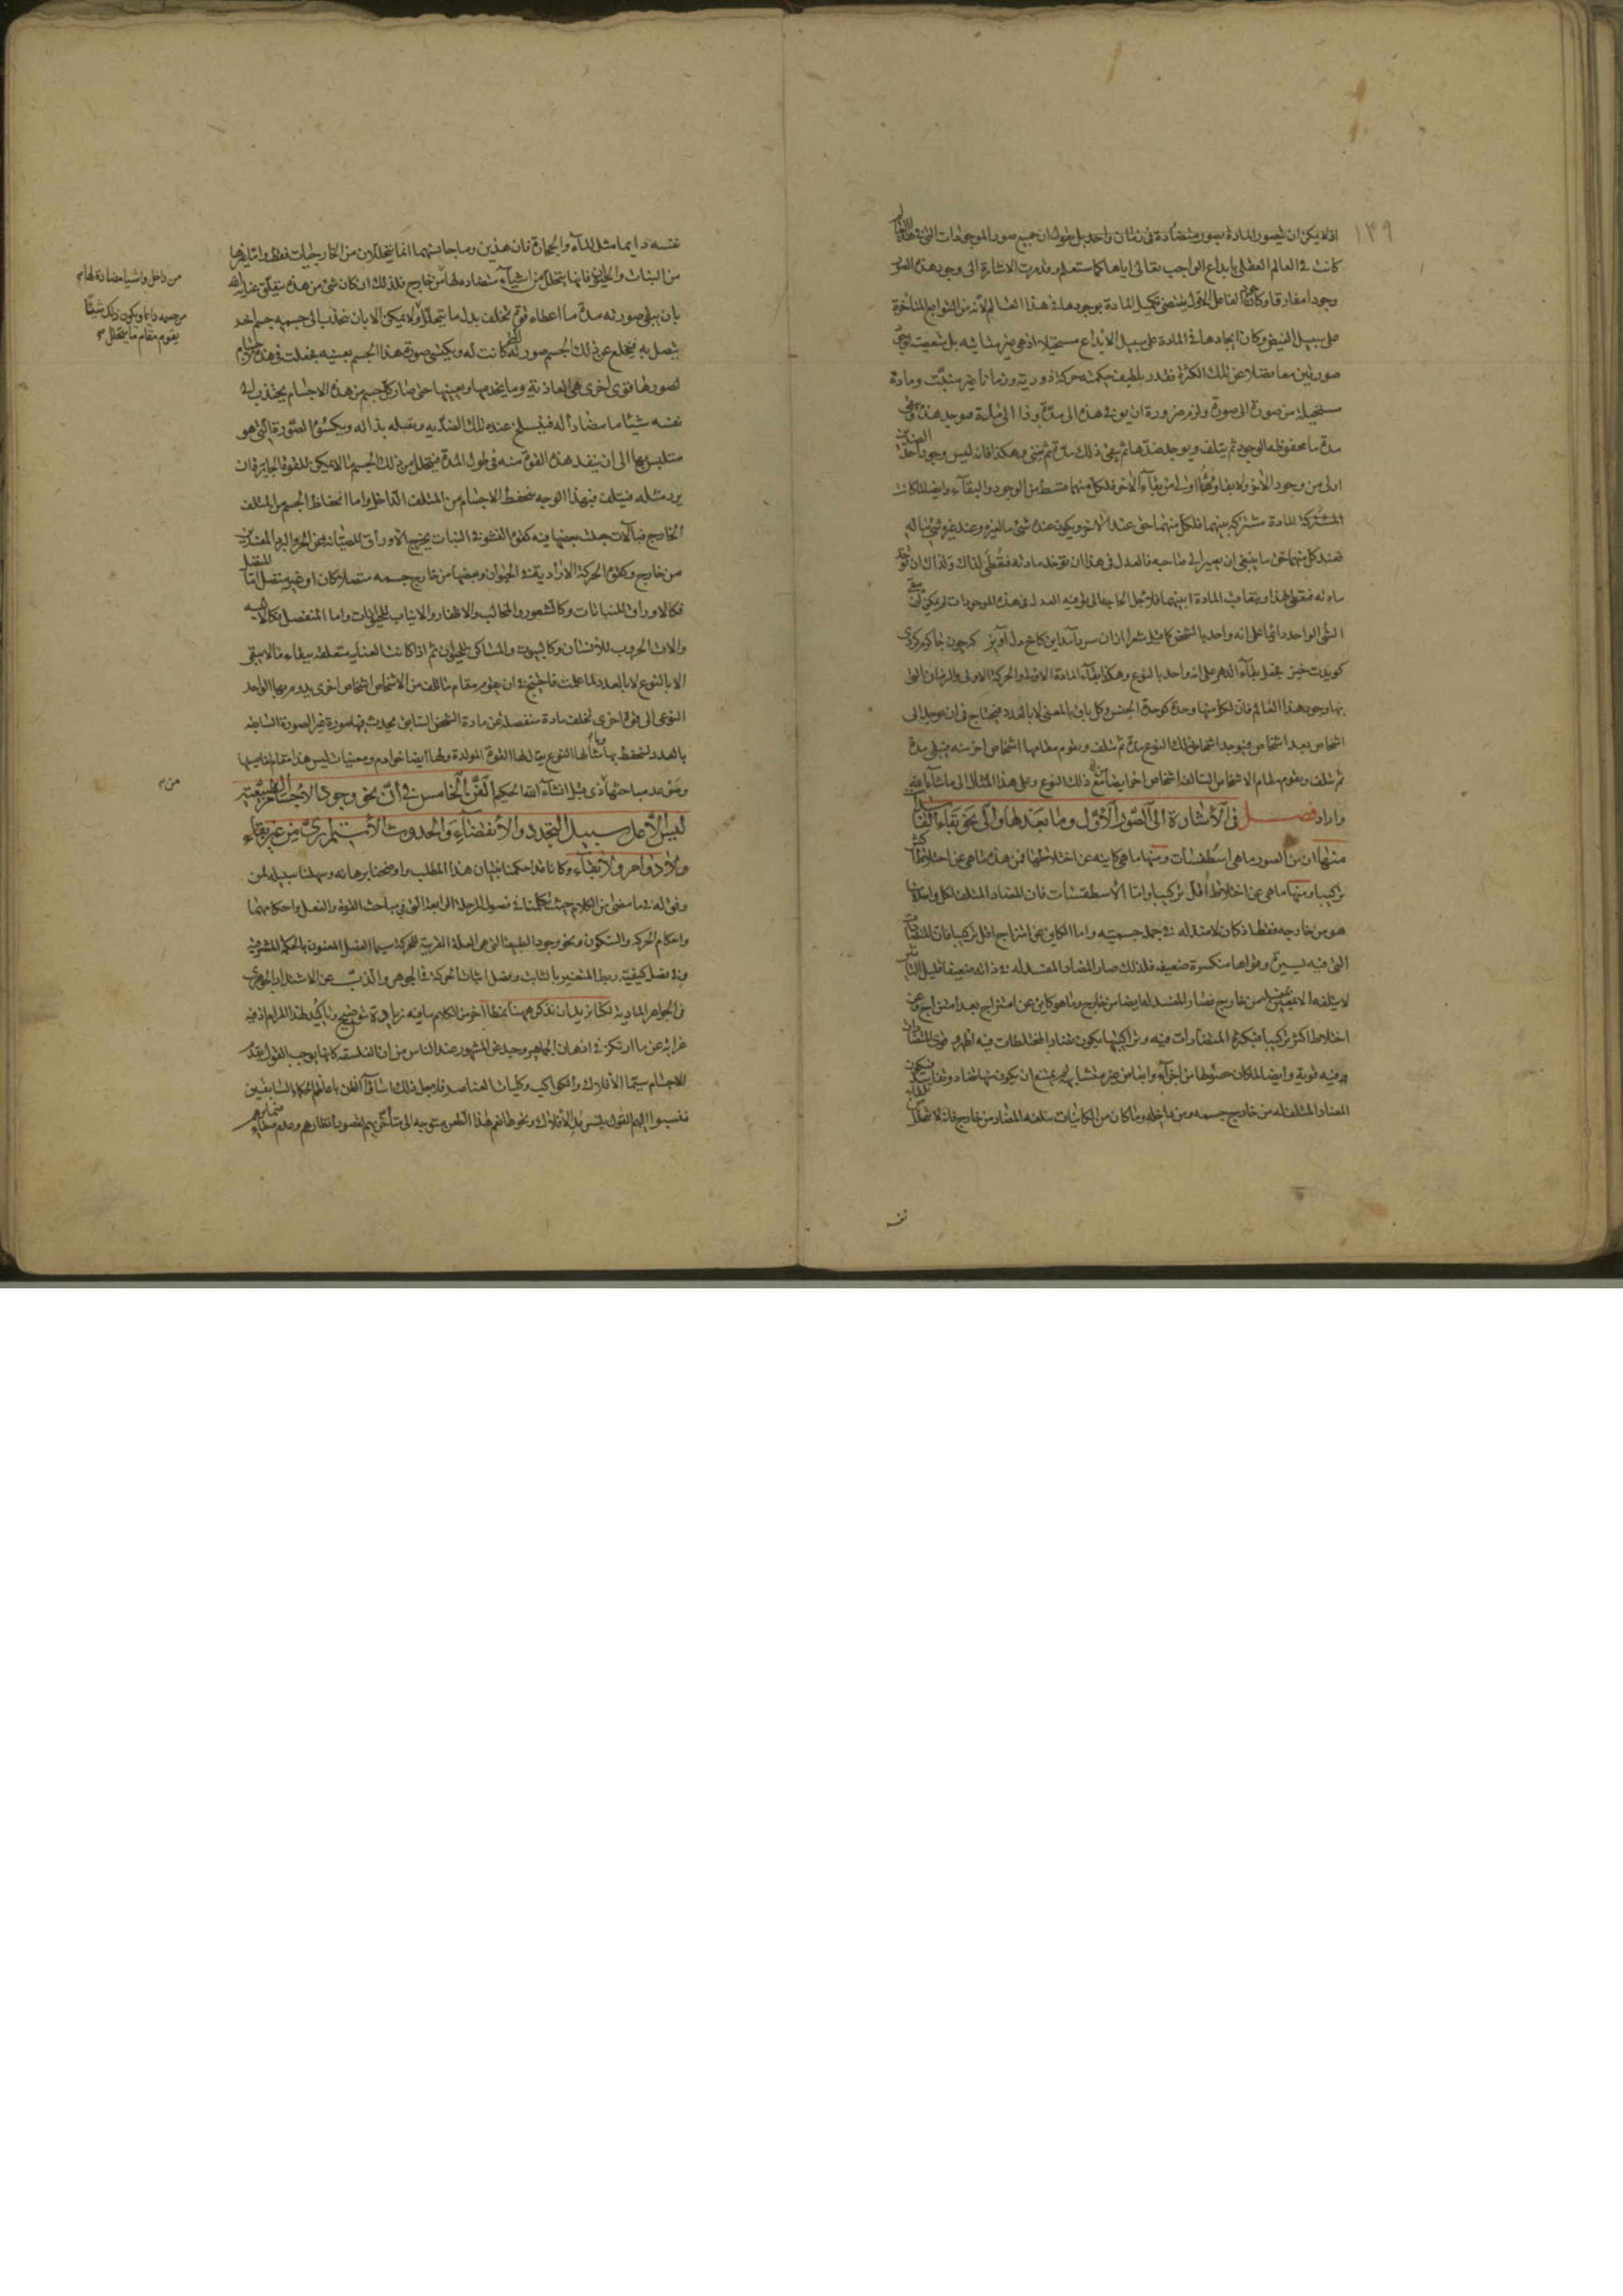 ١٣٩
اذ لا يمكن ان يتصور المادة بصور متضادة فى زمان واحد بل نقول ان جميع صور الموجودات التى فى هذا العالم
كانت فى العالم العقلى بابداع الواجب تعالى اياها كما ستعلم وقد مرت الاشارة الى وجود هذه الصور
وجودا مفارقا وكان جود الفاعل الاول يقتضى تكميل المادة بوجودها فى هذا العالم لانه من التوابع المتأخرة
على سبيل الفيض وكان ايجادها فى المادة على سبيل الابداع مستحيلا اذ هى غير متناهية بل تسعها
صورتين معا فضلا عن تلك الكثرة فقدر بلطيف حكمته حركة دورية وزمانا غير منبت ومادة
مستحيلة من صورة الى صورة ولزم ضرورة ان يوفى هذه الى مدة وذا الى مدة فيوجد هذه ويبقى
مدة ما محفوظة الوجود ثم يتلف ويوجد ضدها ثم يبقى ذلك مدة ثم تفنى وهكذا فانه ليس وجود احد الضدين
اولى من وجود الاخر ولا بقاؤهما اولى من بقاء الاخر فلكل منهما قسط من الوجود والبقاء وايضا لما كانت
المشتركة المادة مشتركة بينهما فلكل منهما حق عند الاخر ويكون عنده شئ ما لغيره وعند غيره شئ ما له
فعند كل منهما حق ما ينبغى ان يصير الى صاحبه فالعدل فى هذا ان توخذ مادته فتعطى لذاك ولذاك ان توخذ
مادته فتعطى لهذا ويتعاقب المادة بينهما فلاجل الحاجة الى توفية العدل فى هذه الموجودات لم يمكن ان يبقى
الشئ الواحد دائما على انه واحد بالشخص كما قيل شعرا
گويدت خيز فجعل بقاء الدهر على انه واحد بالنوع وهكذا بقاء المادة الاولى والحركة الاولى والزمان التى
بها وجود هذا العالم فان لكل منها وحدة كوحدة الجنس وكل باق بالمعنى لا بالعدد فيحتاج فى ان يوجد الى
اشخاص بعد اشخاص فيوجد اشخاص ذلك النوع مدة ثم تتلف ويقوم مقامها اشخاص اخر منه فيبقى مدة
ثم تتلف ويقوم مقام الاشخاص السالفة اشخاص اخر ايضا من ذلك النوع وعلى هذا المثال الى ما شاء الله
واراد فصل فى الاشارة الى الصور الاول وما بعدها والى نحو بقاء الفاسد
منها ان من الصور ما هى اسطقسات ومنها ما هى كاينة عن اختلاطها فمن هذه ما هى عن اختلاط اكثر
تركيبا ومنها ما هى عن اختلاط اقل تركيبا واما الاسطقسات فان المضاد المتلف لكل واحد منها
هو من خارجه فقط اذ كان لا ضد له فى جملة جسميته واما الكاين عن امتزاج اقل تركيبا فان المتضادات
التى فيه يسيرة وقواها منكسرة ضعيفة فلذلك صار المضاد المفسد له فى ذاته ضعيفا قليل التاثير
لا يتلفه الا بمعين من خارج فصار المفسد له ايضا من خارج وما هو كاين عن امتزاج بعد امتزاج وعن
اختلاط اكثر تركيبا فبكثرة المتضادات فيه وتراكيبها يكون تضاد المختلطات فيه اظهر وقوى المتضادات
فيه قوية وايضا لما كان حصولها من اجزاء وابعاض غير متشابهة لم يمتنع ان يكون منها تضاد وتفاسد فيكون
المضاد المتلف له من خارج جسمه ومن داخله وما كان من الكائنات يتلفه المضاد من خارج فانه لا يتحلل من تلقاء
نفسه
نفسه دايما مثل الماء والحجارة فان هذين وما جانسهما انما يتحللان من الخارجيات فقط واما غيرها
من النبات والحيوان فانها يتحلل من اشياء متضادة لها من خارج فلذلك ان كان شئ من هذه يتعلق عناية الله
من داخل واشياء مضادة لها
بان يبقى صورته مدة ما اعطاه قوة تخلف بدل ما يتحلل ولا يمكن الا بان تجذب الى جسمه جسم اخر
من جسمه دايما ويكون ذلك شيئا
يقوم مقام ما يتحلل
يتصل به فيخلع عن ذلك الجسم صورته التى كانت له ويكتسى صورة هذا الجسم بعينه فجعلت فى هذه الاجسام
لصورها قوى اخرى هى الغاذية وما يخدمها ويعينها حتى صار كل جسم من هذه الاجسام يجتذب الى
نفسه شيئا ما مضادا له فينسلخ عنه تلك الضدية ويقبله بذاته ويكسوه الصورة التى هو
متلبس بها الى ان ينفد هذه القوة منه فى طول المدة فيتحلل من ذلك الجسم ما لا يمكن للقوة الجابرة ان
يرد مثله فيتلف فبهذا الوجه يحفظ الاجسام من المتلف الداخل واما انحفاظ الجسم من المتلف
الخارج فبآلات جعلت بعضها فيه كقوة النشو فى النبات يخرج الاوراق للصيانة عن الحر والبرد المفسدين
من خارج وكقوة الحركة الارادية فى الحيوان وبعضها من خارج جسمه متصلا كان او غير متصل اما المتصل
فكالاوراق للنباتات وكالشعور والمخالب والاظفار والانياب للحيوانات واما المنفصل فكالالبسة
والات الحروب للانسان وكالبيوت والمساكن للحيوان ثم اذا كانت العناية متعلقة ببقاء ما لا يبقى
الا بالنوع لا بالعدد لما علمت فاحتيج فى ان يقوم مقام ما تلف من الاشخاص اشخاص اخرى يدوم بها الواحد
النوعى الى قوة اخرى تخلف مادة منفصلة عن مادة الشخص السابق يحدث فيها صورة غير الصورة السابقة
بالعدد لتحفظ بها وبامثالها النوع يقال لها القوة المولدة ولها ايضا خوادم ومعينات ليس هذا مقام تفاصيلها
وموعد مباحثها ذى قبل انشاء الله الحكيم الفن الخامس فى ان نحو وجود الاجسام الطبيعية
من
ليس الا على سبيل التجدد والانقضاء والحدوث الاستمرارى من غير بقاء
ولا دوام ولا بقاء وكانا قد احكمنا بنيان هذا المطلب واوضحنا برهانه وسهلنا سبيله لمن
وفق له فيما مضى من الكلام حيث تكلمنا فى فصول المرحلة الرابعة التى فى مباحث القوة والفعل واحكامهما
واحكام الحركة والسكون ونحو وجود الطبيعة التى هى العلة القريبة للحركة سيما الفصل المعنون بالحكمة المشرقية
وفى فصل كيفية ربط المتغير بالثابت وفصل اثبات الحركة فى الجوهر والذب عن الاشتداد الجوهرى
فى الجواهر المادية لكنا نريد ان نذكر ههنا نمطا اخر من الكلام ما فيه زيادة توضيح وتاكيد لهذا المرام اذ فيه
غرابة عن ما ارتكز فى اذهان الجماهير وحيد عن المشهور عند الناس من ان الفلسفة كانها يوجب القول بقدم
الاجسام سيما الافلاك والكواكب وكليات العناصر فلاجل ذلك اساؤا الظن باعاظم الحكماء السابقين
فنسبوا اليهم القول بتسرمد الافلاك ونحوها نعم هذا الطعن متوجه الى متأخريهم لقصور انظارهم وعدم صفاء ضمائرهم